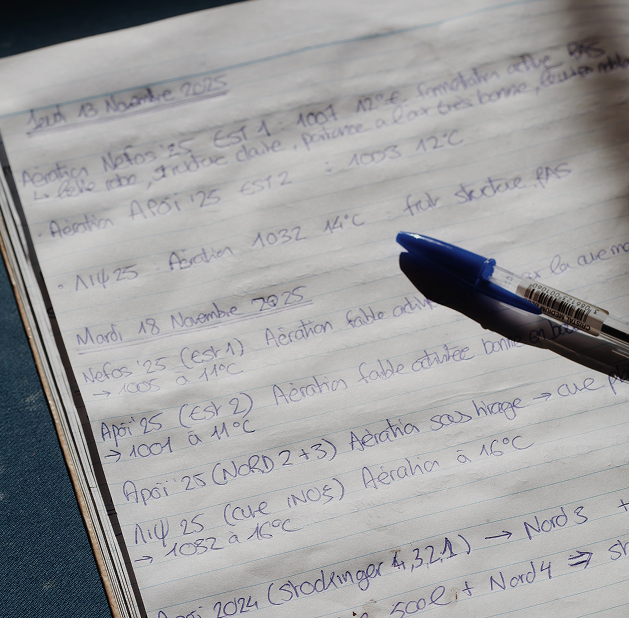 Jeudi 13 Novembre 2025
Aération Nefos '25 EST 1 : 1007 12°C fermentation active PAS
↳ belle robe, structure claire, puissance a l'air très bonne,
· Aération APÖi '25 EST 2 : 1003 12°C
· ΛIΨ 25 Aération 1032 14°C fruit structure PAS
Mardi 18 Novembre 2025
Nefos '25 (Est 1) Aération faible activi
→ 1005 à 11°C
la cuve
Apöi '25 (Est 2) Aération faible activitée bonne en
→ 1001 à 11°C
Apöi '25 (NORD 2+3) Aération sous tirage → cuve
ΛIΨ 25 (cuve iNOX) Aération à 16°C
→ 1032 à 16°C
2024 (Stockinger 4,3,2,1) → Nord 3 +
500l + Nord 4 ⇒